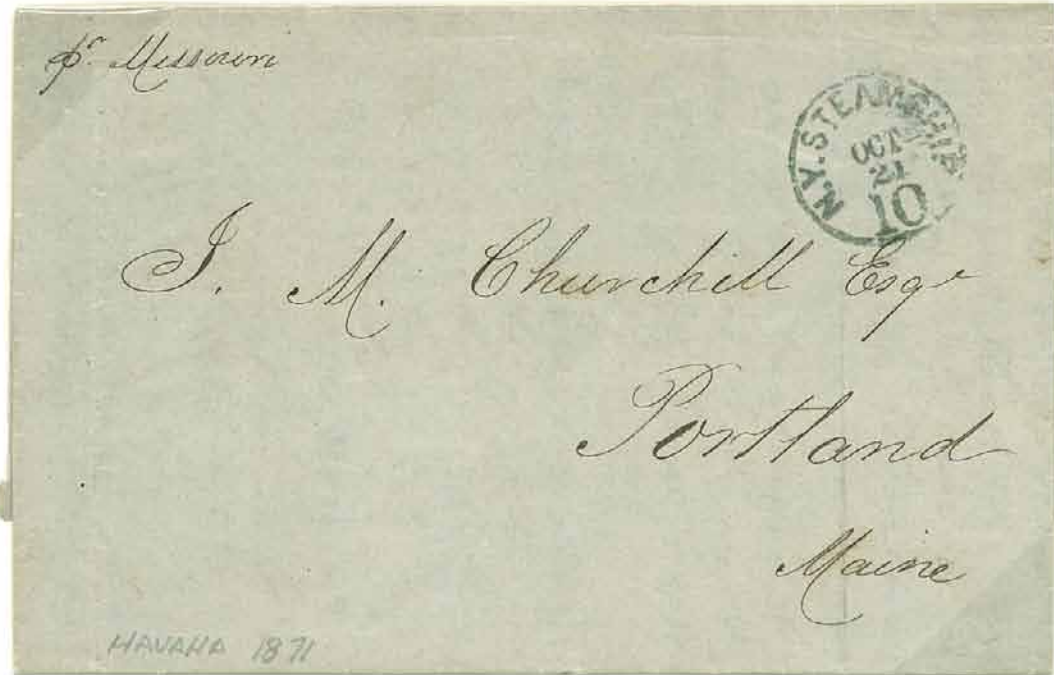 pr. Missouri
N.Y. STEAMSHIP
OCT
21
10
J. M. Churchill Esqr
Portland
Maine
HAVANA 1871